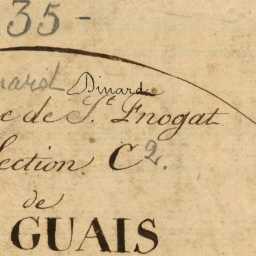 35-
Dinard
de St Enogat
Section C2.
de
GUAIS